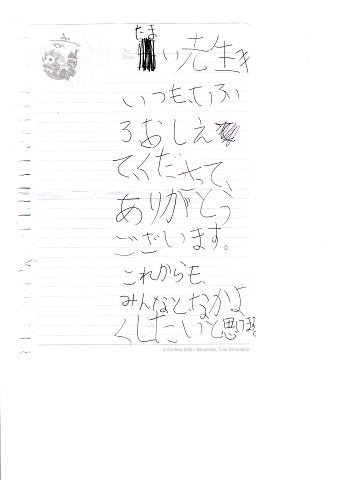 たま
い先生
いつも、
ろおしえ
てくださって、
ありがとう
ございます。
これからも、
みんなと、なかよ
くしたいと思います。
© Eiichiro Oda / Shueisha, Toei Animation